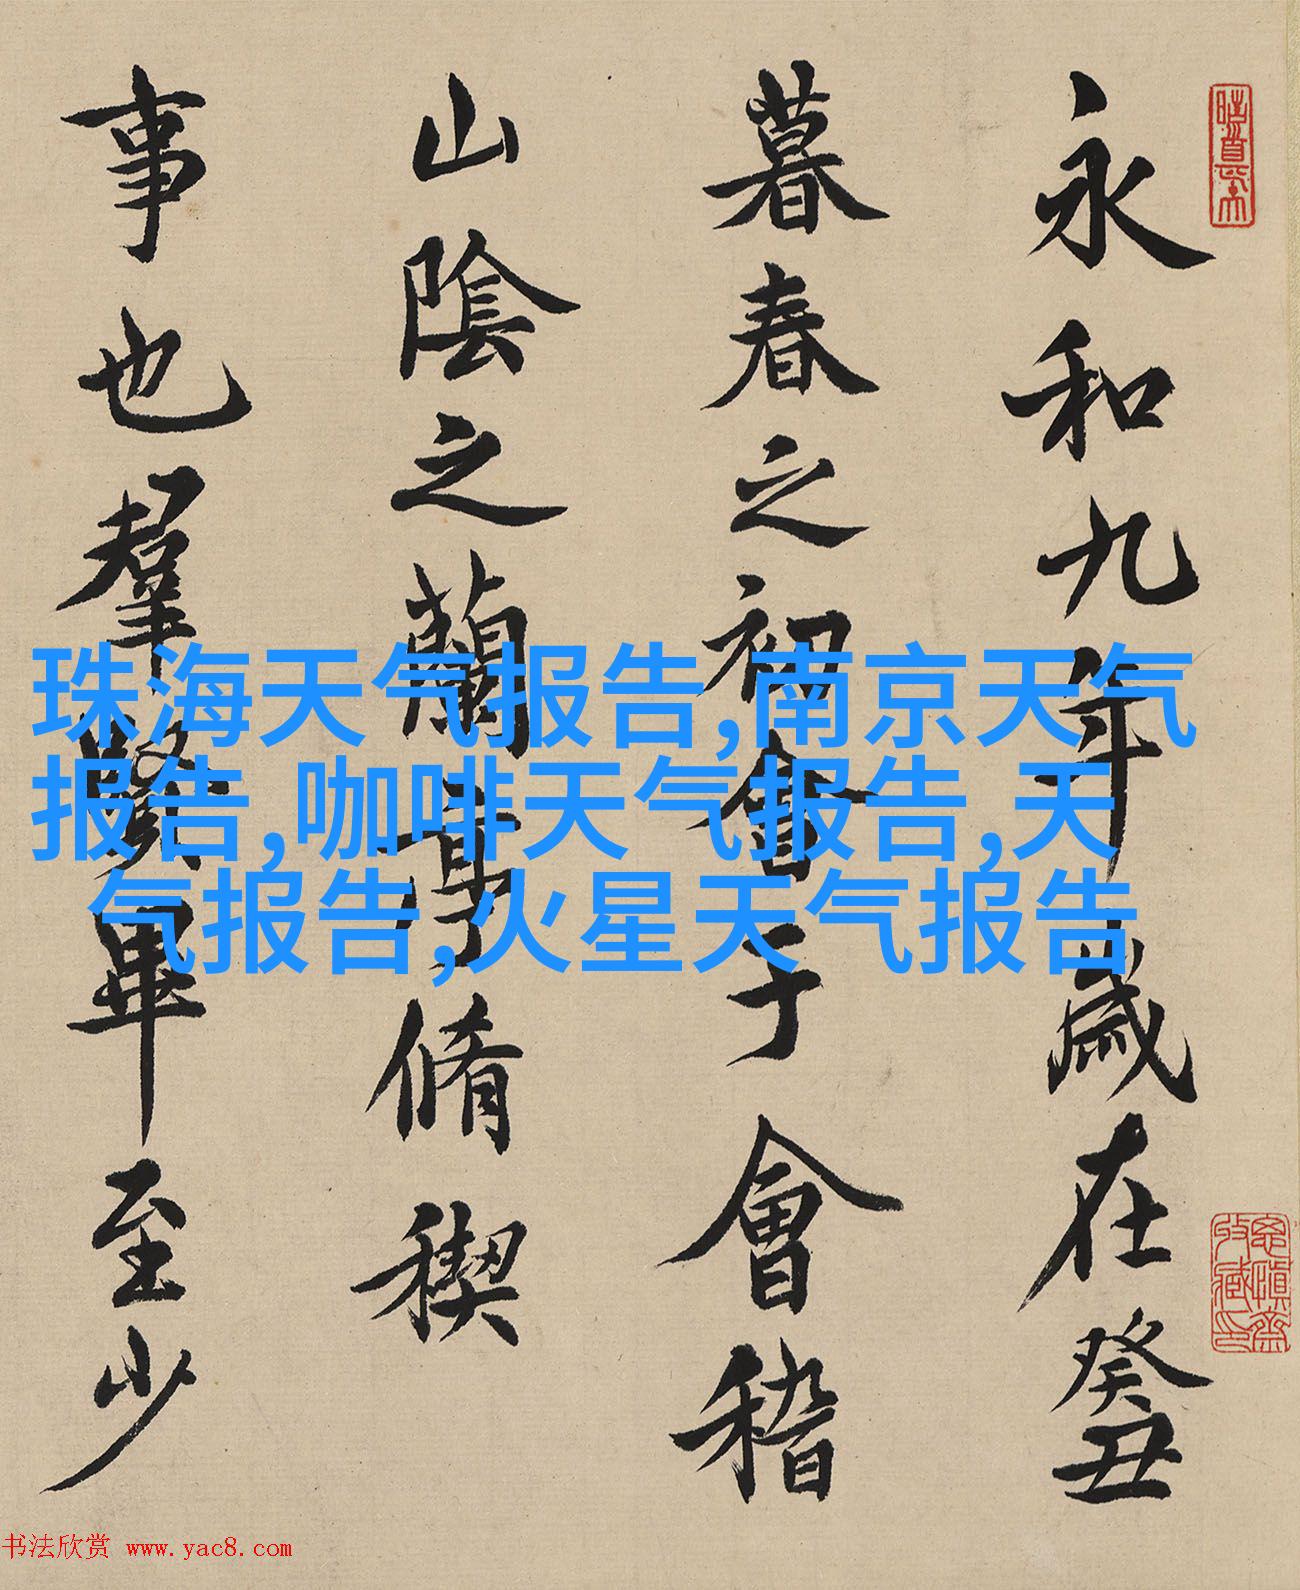 永和九年歲在癸丑
暮春之初會于會稽
山陰之蘭亭脩稧
事也羣賢畢至少
珠海天气报告,南京天气
报告,咖啡天气报告,天
气报告,火星天气报告
书法欣赏 www.yac8.com